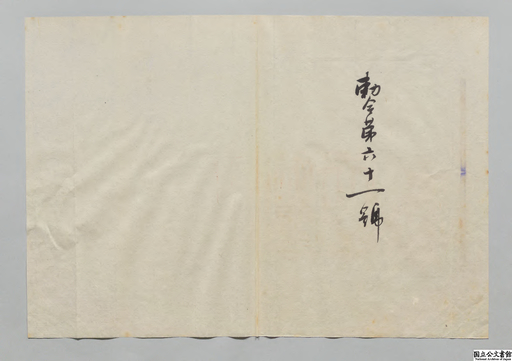 勅令第六十一號
国立公文書館
National Archives of Japan